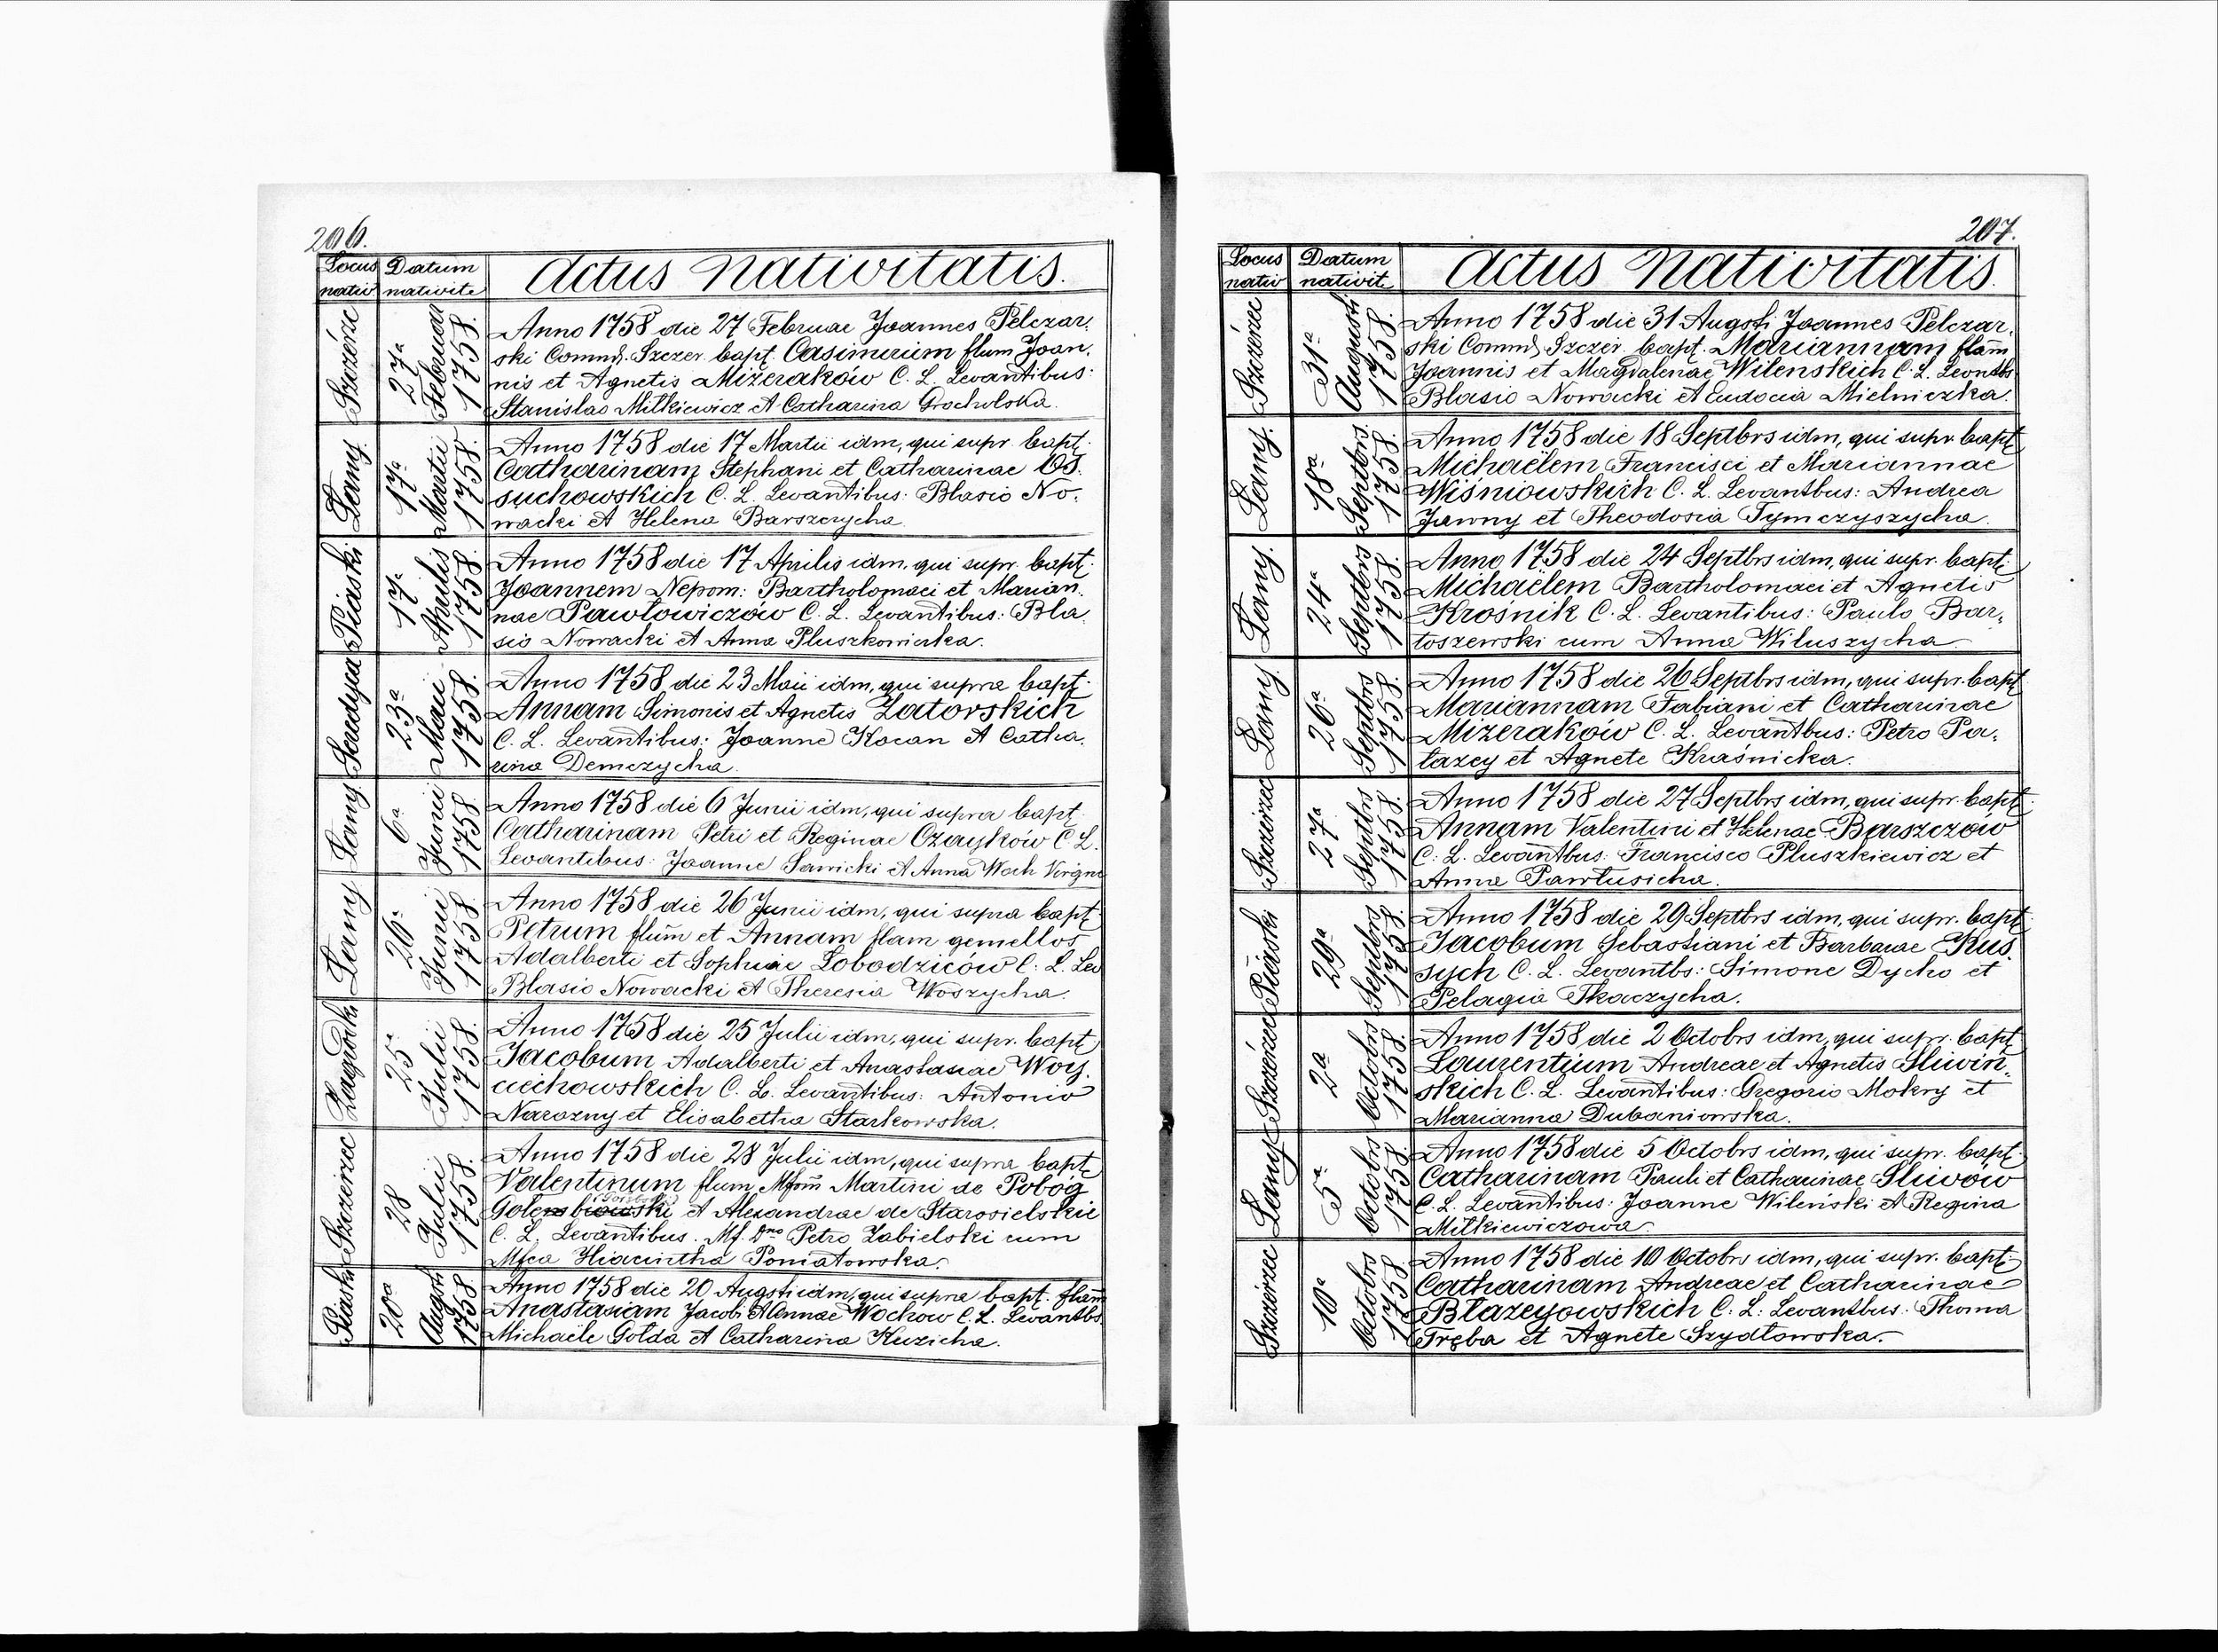 206.
Locus nativ
Datum nativite
Actus Nativitatis.
Szczérzec
27ª Februar 1758.
Anno 1758 die 27 Februae Joannes Pelczar,
ski Commd. Szczer. bapt. Casimirum flum Joan,
nis et Agnetis Mizeraków C. L. Levantibus:
Stanislao Mitkiewicz et Catharina Grocholska.
Łany.
17ª Martii 1758.
Anno 1758 die 17 Martii idm, qui supr. bapt.
Catharinam Stephani et Catharinae Os.
suchowskich C. L. Levantibus: Blasio No.
wacki et Helena Barszczycha.
Piaski
17ª Aprilis 1758.
Anno 1758 die 17 Aprilis idm, qui supr. bapt.
Joannem Nepom: Bartholomaei et Marian.
nae Pawłowiczów C. L. Levantibus: Bla
sio Nowacki et Anna Pluszkowicka.
Seredyca
23ª Maii 1758.
Anno 1758 die 23 Maii idm, qui supra bapt.
Annam Simonis et Agnetis Zatorskich
C. L. Levantibus: Joanne Kocan et Catha,
rina Demczycha.
Łany.
6ª Junii 1758.
Anno 1758 die 6 Junii idm, qui supra bapt.
Catharinam Petri et Reginae Czayków C L.
Levantibus: Joanne Sawicki et Anna Woch Virgine
Łany
26ª Junii 1758.
Anno 1758 die 26 Junii idm, qui supra bapt.
Petrum flum et Annam flam gemellos
Adalberti et Sophiae Łobodziców C. L. Lev
Blasio Nowacki et Theresia Woszycha.
Zagródki
25ª Julii 1758.
Anno 1758 die 25 Julii idm, qui supr. bapt
Jacobum Adalberti et Anastasiae Woy,
ciechowskich C. L. Levantibus: Antonio
Narozny et Elisabetha Starkowska.
Szczérzec
28 Julii 1758.
Anno 1758 die 28 Julii idm, qui supra bapt
Valentinum flum Mfom Martini de Pobóg
Golembiowski et Alexandrae de Starosielskie
C. L. Levantibus. Mf. Dno Petro Zabielski cum
Mfca Hiacintha Poniatowska.
Piaski
20ª Augsti 1758.
Anno 1758 die 20 Augsti idm, qui supra bapt. flam
Anastasiam Jacobi et Annae Wochow C. L. Levantbs
Michaële Gołda et Catharina Kuzicha.
207.
Locus nativ
Datum nativit.
Actus Nativitatis.
Szczérzec
31ª Augusti 1758.
Anno 1758 die 31 Augsti Joannes Pelczar,
ski Commd. Szczer. bapt. Mariannam flam
Joannis et Magdalenae Wilenskich C. L. Levntbs
Blasio Nowacki et Eudocia Mielniczka.
Łany.
18ª Septbrs. 1758.
Anno 1758 die 18 Septbrs idm, qui supr. bapt
Michaëlem Francisci et Mariannae
Wiśniowskich C. L. Levantbus: Andrea
Jawny et Theodosia Tymczyszycha.
Łany.
24ª Septbrs 1758.
Anno 1758 die 24 Septbrs idm, qui supr. bapt.
Michaëlem Bartholomaei et Agnetis
Krośnik C. L. Levantibus: Paulo Bar,
toszewski cum Anna Wiluszycha
Łany.
26ª Septbrs 1758.
Anno 1758 die 26 Septbrs idm, qui supr. bapt
Mariannam Fabiani et Catharinae
Mizeraków C. L. Levantbus: Petro Pa,
tazey et Agnete Kraśnicka.
Szczérzec
27ª Septbrs 1758.
Anno 1758 die 27 Septbrs idm, qui supr. bapt.
Annam Valentini et Helenae Barszczów
C. L. Levantbus: Francisco Pluszkiewicz et
Anna Pawłusicha.
Piaski
29ª Septbrs 1758.
Anno 1758 die 29 Septbrs idm, qui supr. bapt.
Jacobum Sebastiani et Barbarae Kus
sych C. L. Levantbs: Simone Dycho et
Pelagia Tkaczycha.
Szczérzec
2ª Octobrs 1758.
Anno 1758 die 2 Octobrs idm, qui supr. bapt
Laurentium Andreae et Agnetis Sliwiń,
skich C. L. Levantibus: Gregorio Mokry et
Marianna Dubaniowska.
Łany
5ª Octobrs 1758.
Anno 1758 die 5 Octobrs idm, qui supr. bapt.
Catharinam Pauli et Catharinae Sliwów
C. L. Levantibus: Joanne Wileński et Regina
Mitkiewiczowa.
Szczérzec
10ª Octobrs 1758.
Anno 1758 die 10 Octobrs idm, qui supr. bapt.
Catharinam Andreae et Catharinae
Błazeyowskich C. L. Levantbus: Thoma
Tręba et Agnete Szydłowska.